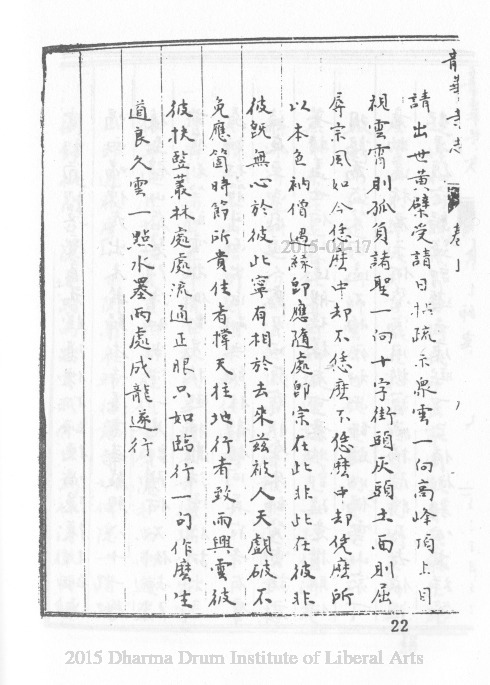 請出世黃檗受請日拈疏示眾雲一向高峰頂上目
視雲霄則孤負諸聖一向十字街頭灰頭土面則屈
辱宗風如今恁麼中却不恁麼不恁麼中却恁麼所
以本色衲僧遇緣即應隨處即宗在此非此在彼非
彼既無心於彼此寧有相於去來茲被人天戲破不
免應箇時節所貴住者撐天拄地行者致雨興雲彼
彼扶豎叢林處處流通正眼只如臨行一句作麼生
道良久雲一點水墨兩處成龍遂行
22
2015-04-17
2015 Dharma Drum Institute of Liberal Arts